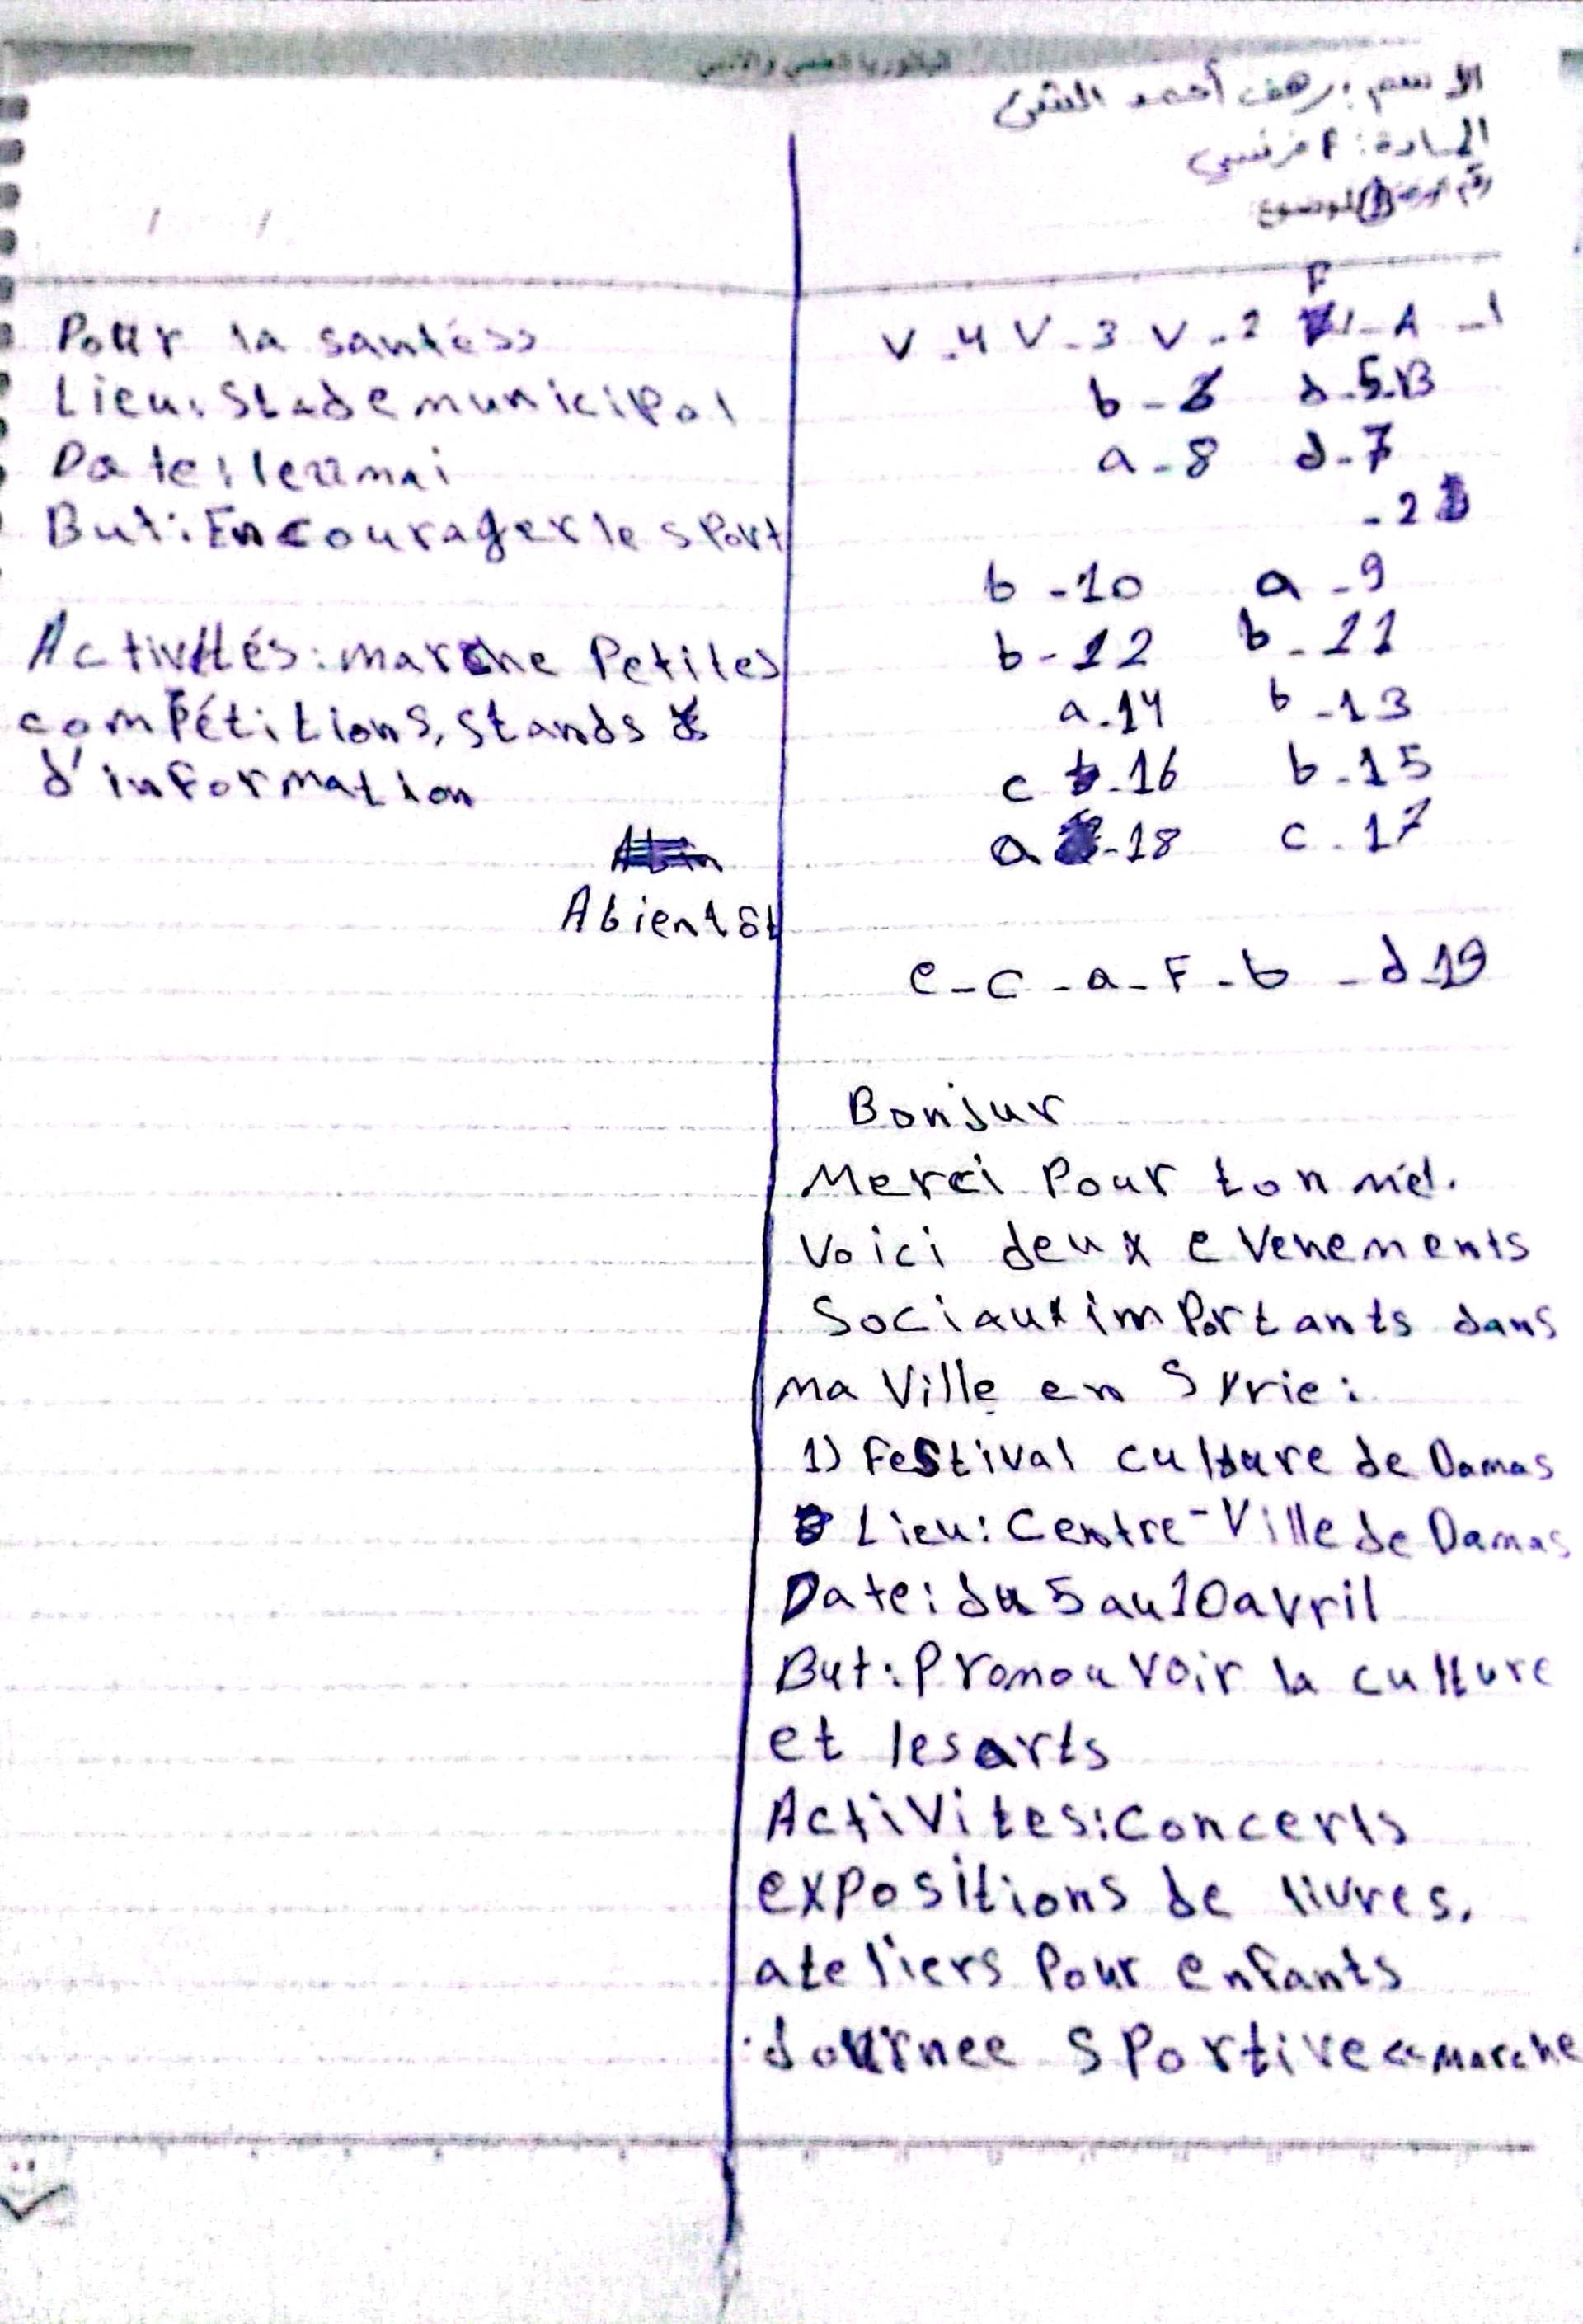 البكالوريا العلمي والأدبي
الاسم: رهف أحمد
المادة: فرنسي
رقم الموضوع 1
F
V - 4 V - 3 V - 2 1 - A - 1
b - 6 d - 5 - B
a - 8 d - 7
- 2
b - 10 a - 9
b - 12 b - 11
a - 14 b - 13
c - 16 b - 15
a - 18 c - 17
e - c - a - F - b - d - 19
Bonjur
Merci Pour ton mél.
Voici deux evenements
Sociaux importants dans
ma Ville en Syrie:
1) Festival culture de Damas
Lieu: Centre-Ville de Damas
Date: du 5 au 10 avril
But: Promouvoir la culture
et les arts
Activites: Concerts
expositions de livres.
ateliers Pour enfants
Journee Sportive «marche
Pour la santé»
Lieu: Stade municipal
Date: le 22 mai
But: Encourager le sport
Activités: marche Petites
compétitions, stands
d'information
A bientôt